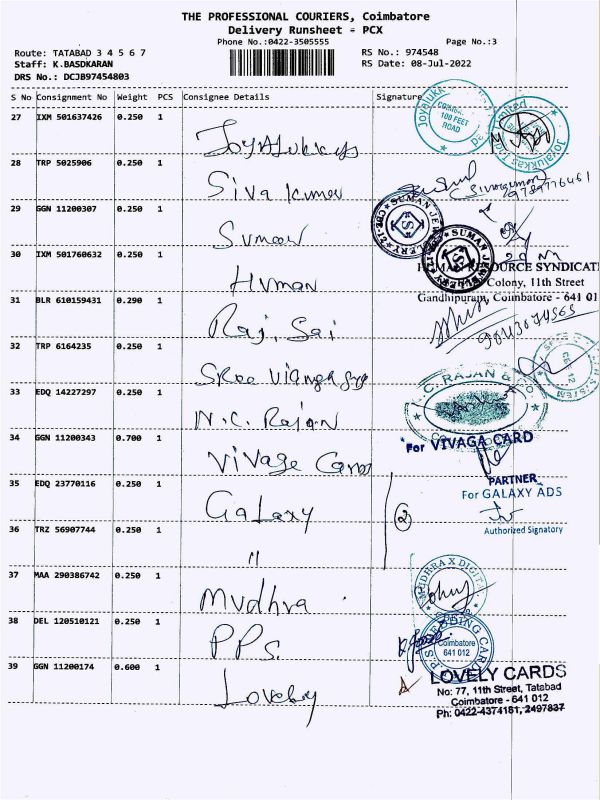 THE PROFESSIONAL COURIERS, Coimbatore
Delivery Runsheet = PCX
Phone No.:0422-3505555
Page No.:3
Route: TATABAD 3 4 5 6 7
RS No.: 974548
Staff: K.BASDKARAN
RS Date: 08-Jul-2022
DRS No.: DCJB97454803
S No Consignment No Weight PCS Consignee Details Signature
27 IXM 501637426 0.250 1 Joyalukkas
Joyalukkas
100 FEET ROAD
Joyalukkas
Limited
28 TRP 5025906 0.250 1 Siva kumar
9789776461
29 GGN 11200307 0.250 1 Suman
SUMAN JEWELLERY
SUMAN JEWELLERY
30 IXM 501760632 0.250 1 Human
RESOURCE SYNDICAT
Colony, 11th Street
Gandhipuram, Coimbatore - 641 01
31 BLR 610159431 0.290 1 Raj. Sai
32 TRP 6164235 0.250 1 Sree
33 EDQ 14227297 0.250 1 N.C. Rajan
C. RAJAN & CO
34 GGN 11200343 0.700 1 Vivage Cards
For VIVAGA CARD
PARTNER
35 EDQ 23770116 0.250 1 Galaxy
2
For GALAXY ADS
Authorized Signatory
36 TRZ 56907744 0.250 1 "
37 MAA 290386742 0.250 1 Mudhra
MUDHRAX DIGIT
38 DEL 120510121 0.250 1 PPS.
P.P.S. WEDDING CARD
Coimbatore
641 012
39 GGN 11200174 0.600 1 Lovely
LOVELY CARDS
No: 77, 11th Street, Tatabad
Coimbatore - 641 012
Ph: 0422-4374181, 2497837